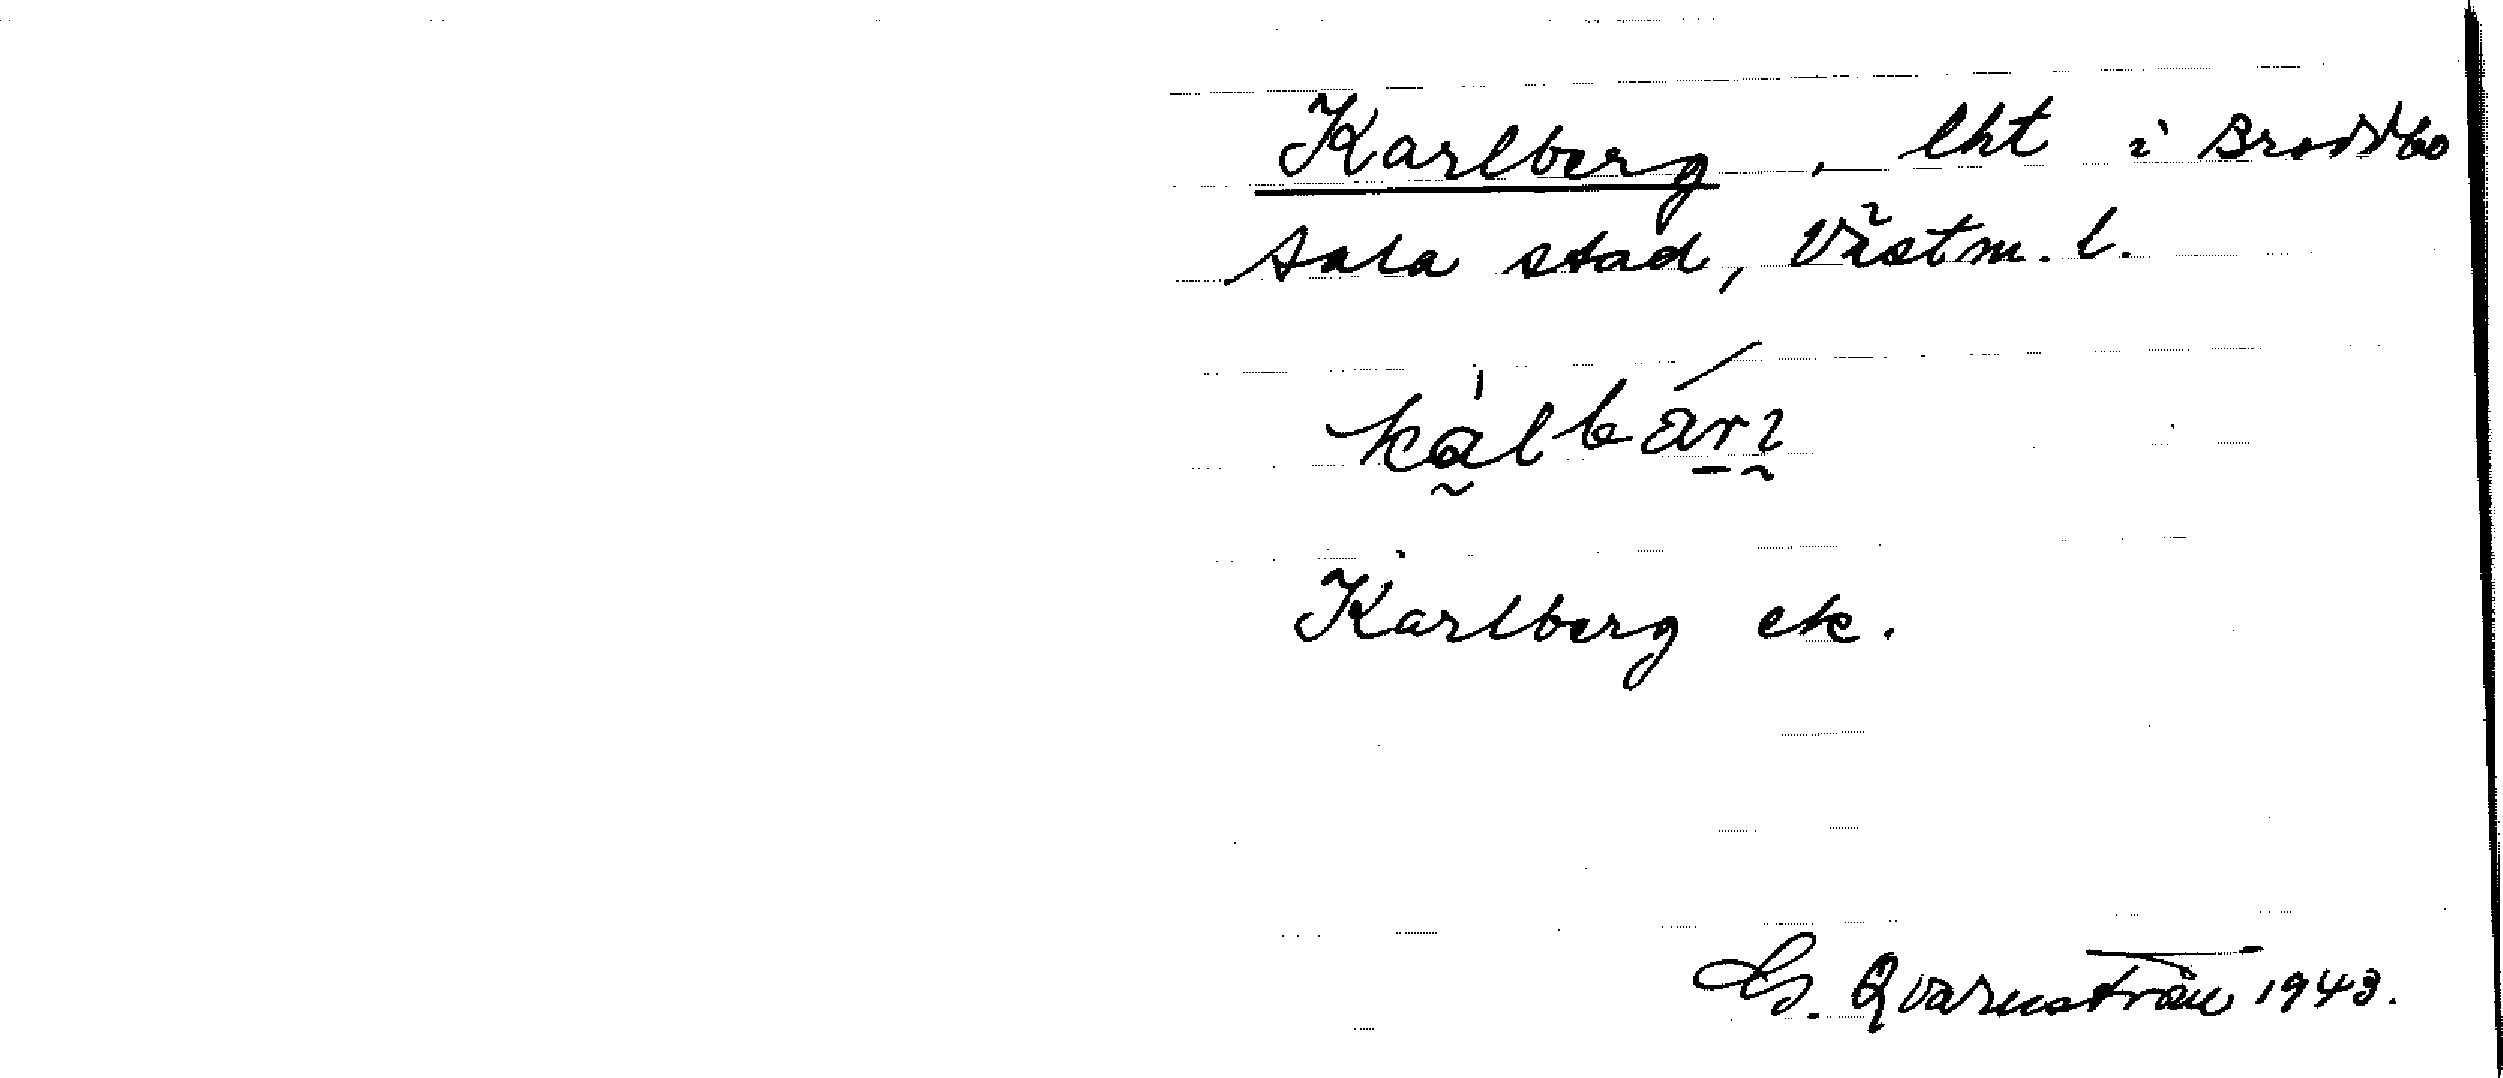 Karlberg, lht i Broddbo
Sala stad, Västm. l.
Karlberg ek.
G. Qvarnström 1943.